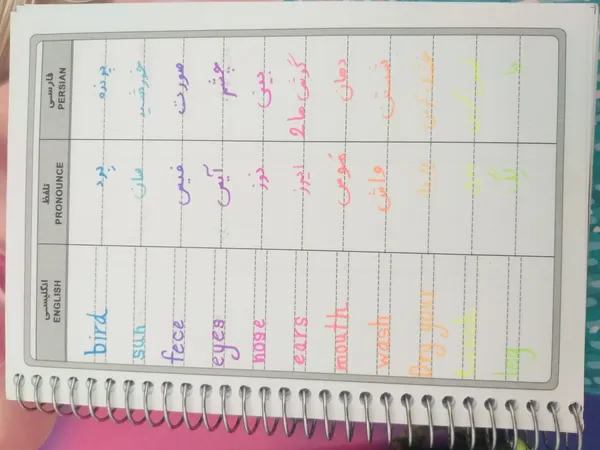 انگلیسی تلفظ فارسی
ENGLISH PRONOUNCE PERSIAN
bird برد پرنده
sun سان خورشید
fece فیس صورت
eyes آیس چشم
nose نوز بینی
ears ایرز گوش ها 2
mouth موس دهان
wash واش شستن
Dry your
leg لگ پا